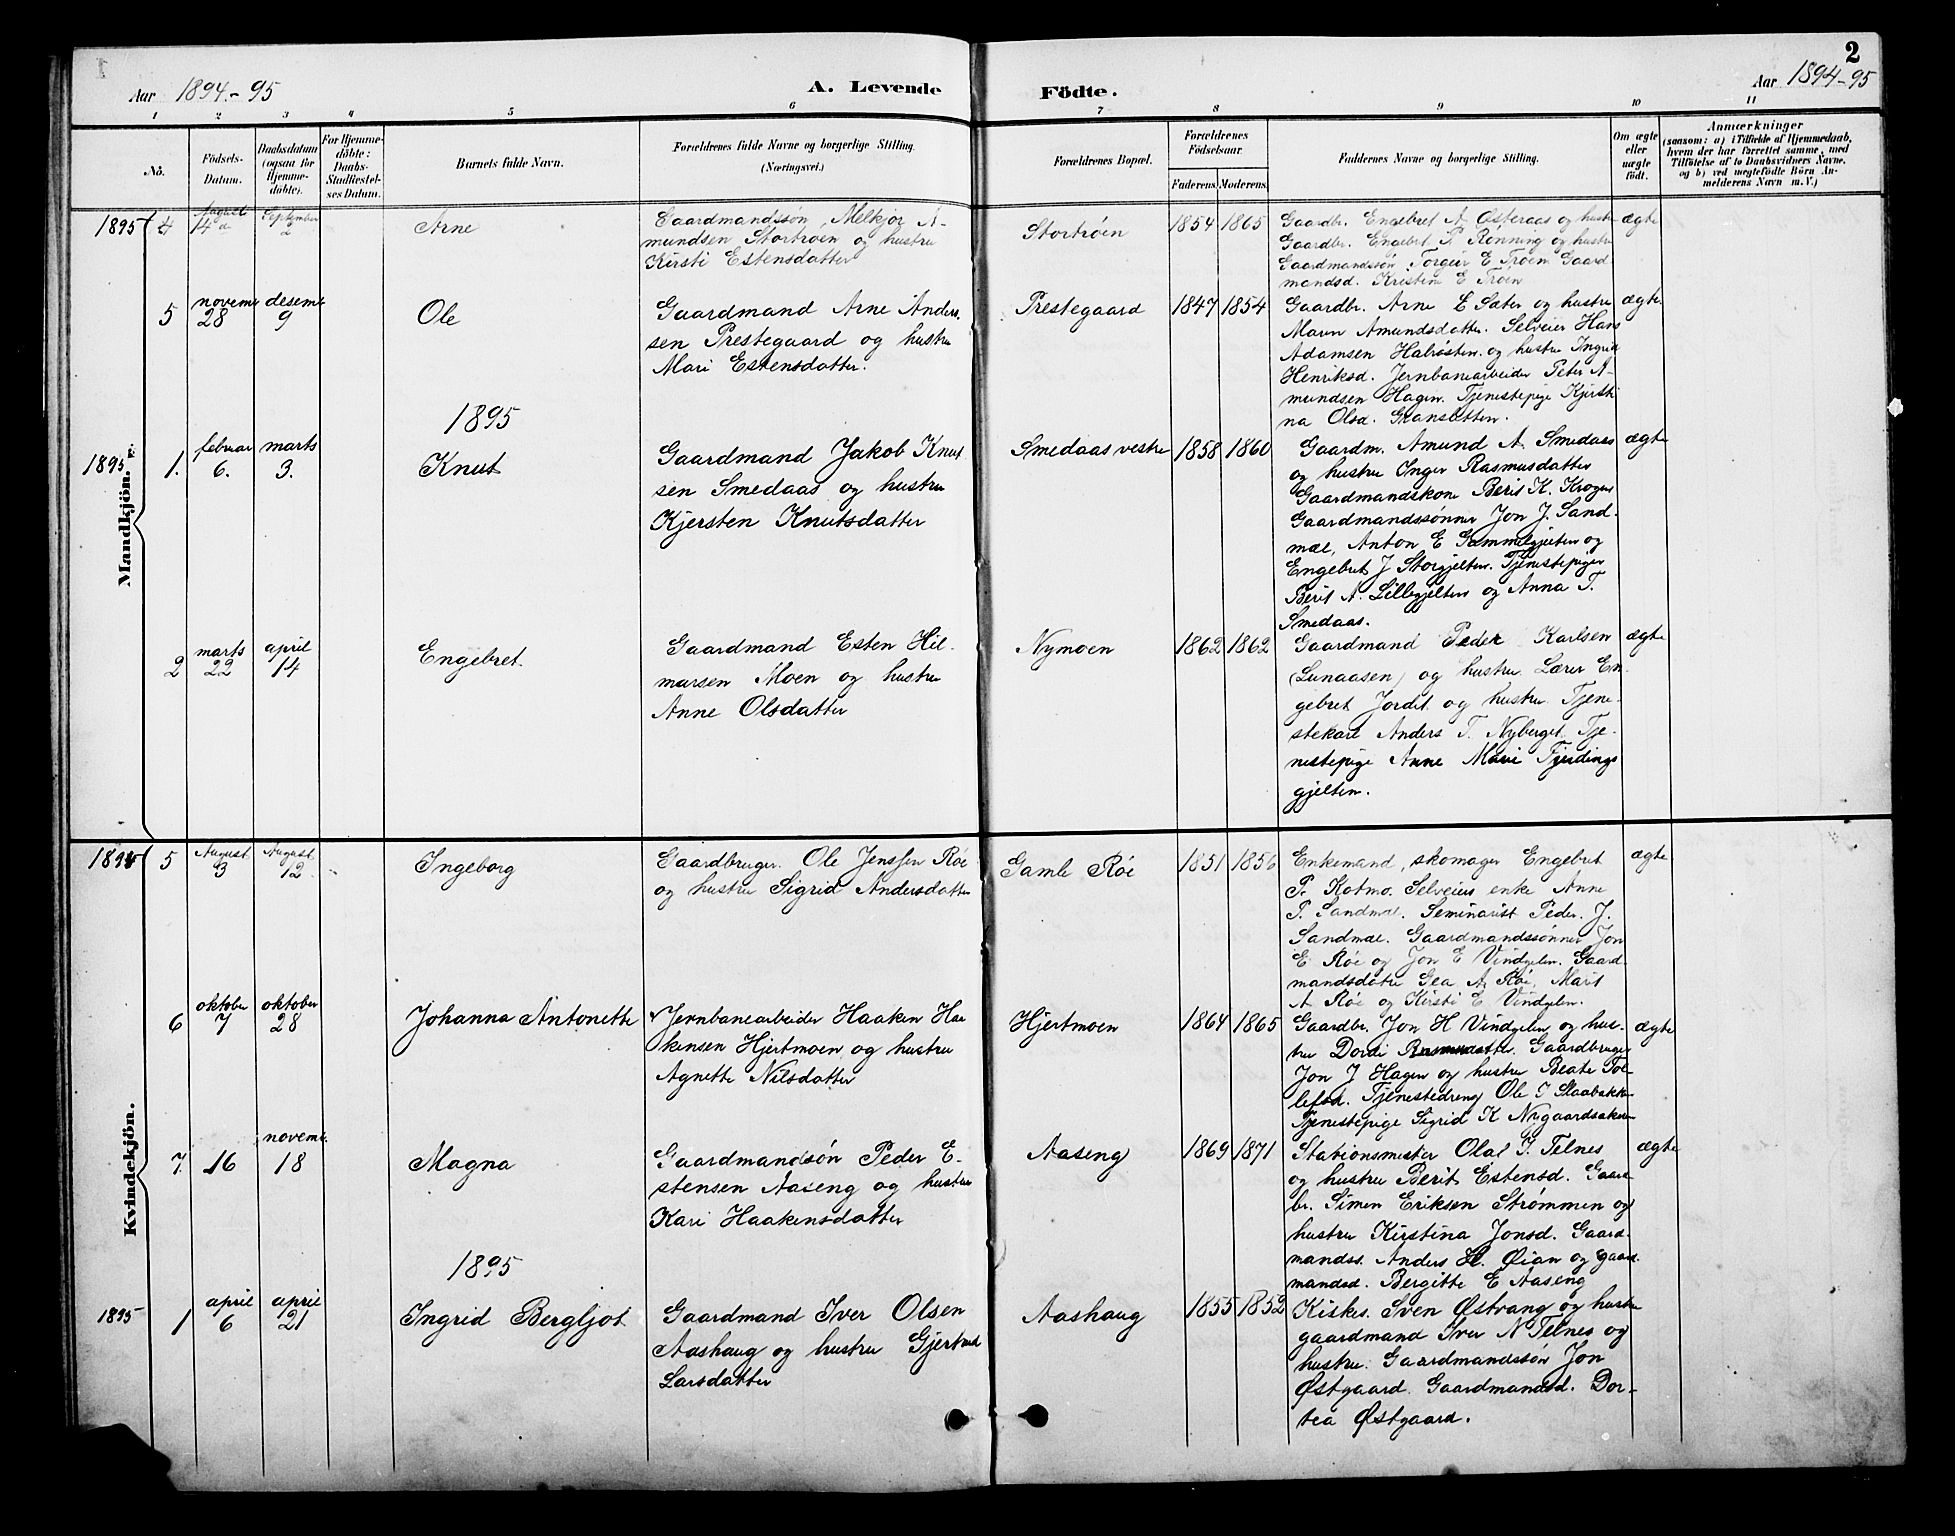 2
Aar 1894.-95
A. Levende
Födte.
Aar 1894-95
1 2 3 4 5 6 7 8 9 10 11
No.
Födsels-
Datum.
Daabsdatum
(ogsaa for
Hjemme-
döbte).
For Hjemme-
döbte:
Daabs-
Stadfæstel-
ses Datum.
Barnets fulde Navn.
Forældrenes fulde Navne og borgerlige Stilling.
(Næringsvei.)
Forældrenes Bopæl.
Forældrenes
Födselsaar.
Faderens. Moderens.
Faddernes Navne og borgerlige Stilling.
Om ægte
eller
uægte
födt.
Anmærkninger
(saasom: a) i Tilfælde af Hjemmedaab,
hvem der har forrettet samme, med
Tilföielse af to Daabsvidners Navne,
og b) ved uegtefödte Börn An-
melderens Navn m. V.)
Mandkjön.
1895 4
August
14
September
2
Arne
Gaardmandssøn Melkjor A-
mundsen Stortrøen og hustru
Kirsti Estensdatter
Stortrøen
1854 1865
Gaardbr. Engebret A Østeraas og hustru
Gaardbr. Engebret P. Rønning og hustru
Gaardmandssøn Torgeir E Trøen Gaard
mandsd. Kristine E Trøen
ægte
5
novem.
28
desem.
9
Ole
Gaardmand Arne Anders.
sen Prestegaard og hustru
Mari Estensdatter.
Prestegaard
1847 1854
Gaardbr. Arne E Sæter og hustru
Maren Amundsdatter. Selveier Hans
Adamsen Halvøsten og hustru Ingrid
Henriksd. Jernbanearbeider Peter A-
mundsen Hagen. Tjenestepige Kjersti
na Olsd. Gransletten.
ægte
1895
1895
1.
februar
6.
marts
3.
Knut
Gaardmand Jakob Knut
sen Smedaas og hustru
Kjersten Knutsdatter
Smedaas vestre
1858 1860
Gaardm. Amund A. Smedaas
og hustru Inger Rasmusdatter
Gaardmandskone Berit K. Krogen
Gaardmandssønner Jon J. Sand-
mæl, Anton E Gammelgjelten og
Engebret J Storgjelten. Tjenestepiger
Berit A. Lillegjelten og Anna T.
Smedaas.
ægte
2
marts
22
april
14
Engebret
Gaardmand Esten Hil-
marsen Moen og hustru
Anne Olsdatter
Nymoen
1862 1862
Gaardmand Peder Karlsen
(Lunaasen) og hustru. Lærer En-
gebret Jordet og hustru Tjene-
stekarl Anders T. Nyberget. Tje-
nestepige Anne Marie Fjerdings
gjelten.
ægte
Kvindekjön.
1894 5
August
3
August
12
Ingeborg
Gaardbruger Ole Jenssen Røe
og hustru Sigrid Andersdatter
Gamle Røe
1851 1856
Enkemand, skomager Engebret
P. Kotmo. Selveiers enke Anne
P. Sandmæl. Seminarist Peder J.
Sandmæl. Gaardmandssønner Jon
E Røe og Jon E Vindgelen. Gaard
mandsdøtre Gea A Røe, Marit
A Røe og Kirsti E Vindgelen.
ægte
6
oktober
7
oktober
28
Johanna Antonette
Jernbanearbeider Haaken Haa
kensen Hjertmoen og hustru
Agnette Nilsdatter
Hjertmoen
1864 1865
Gaardbr. Jon H Vindgelen og hus-
tru Dordi Rasmusdatter. Gaardbruger
Jon J Hagen og hustru Beate Tol
lefsd. Tjenestedreng Ole J Slaabakken
Tjenestepige Sigrid K Nygaardsaker
ægte
7.
16
novem.
18
Magna
Gaardmandssøn Peder E-
stensen Aaseng og hustru
Kari Haakensdatter
Aaseng
1869 1871
Stationsmester Olaf J. Telnes
og hustru Berit Estensd. Gaard
br. Simen Eriksen Strømmen og
hustru Kirstina Jonsd. Gaard-
mandss. Anders H. Øian og gaard-
mandsd. Bergitte E Aaseng
ægte
1895
1895 1
april
6
april
21
Ingrid Bergljot
Gaardmand Iver Olsen
Aashaug og hustru Gjertrud
Larsdatter
Aashaug
1855 1852
Kirkes. Sven Østvang og hustru
gaardmand Iver N Telnes og
hustru. Gaardmandssøn Jon
Østgaard. Gaardmandsd. Dor-
tea Østgaard.